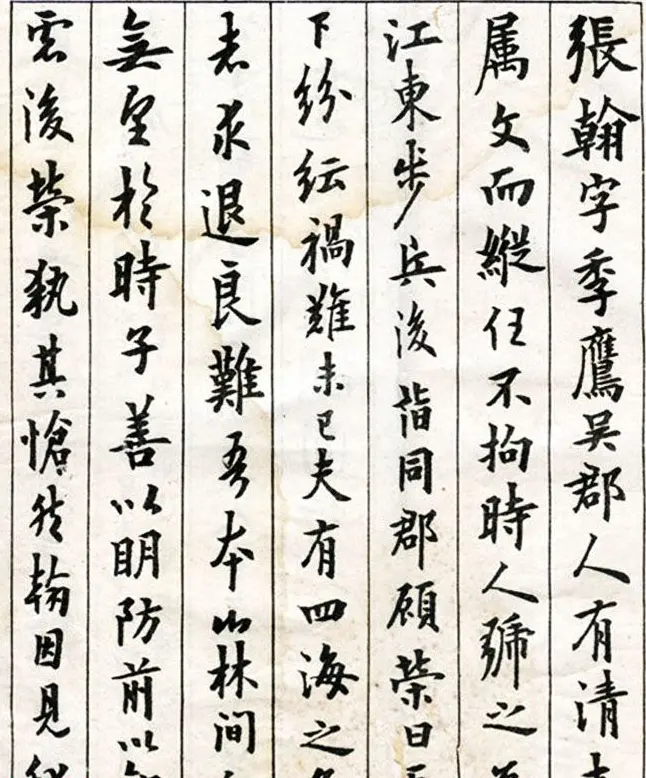 張翰字季鷹吳郡人有清
属文而縱任不拘時人號之
江東步兵後謂同郡顾榮曰
下紛紜禍難未已夫有四海之
者求退良難吾本山林間
無望於時子善以明防前以
虑後榮執其愴然翰因見